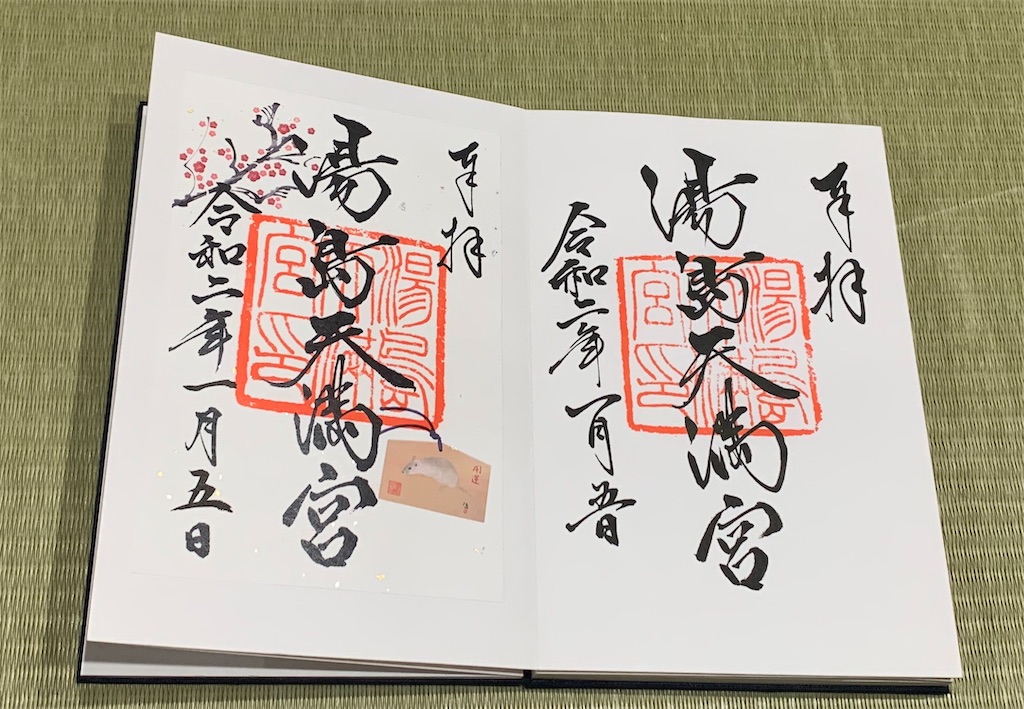 奉拝
湯島天満宮
湯島天満宮印
令和二年一月五日
奉拝
湯島天満宮
湯島天満宮印
令和二年一月五日
開運